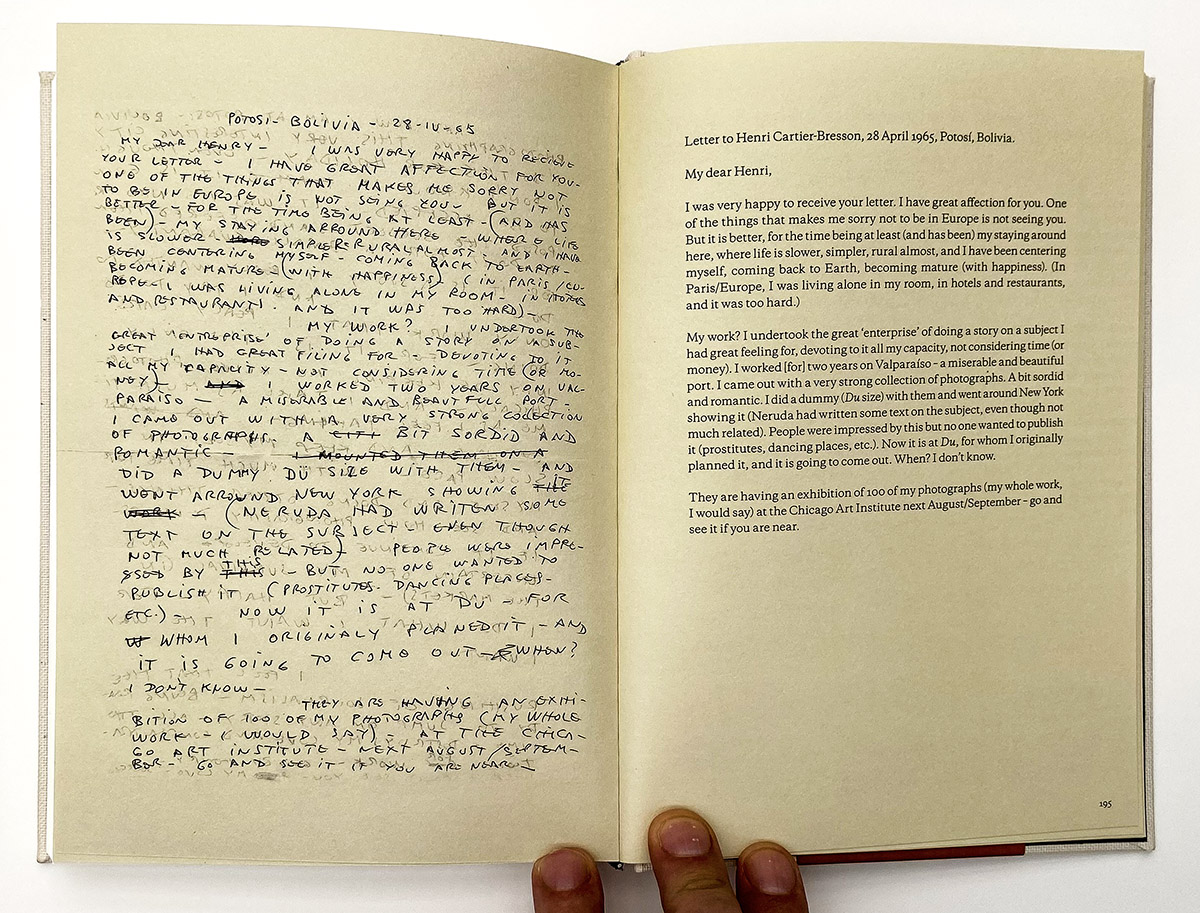 POTOSI - BOLIVIA - 28-IV-65
MY DEAR HENRY - I WAS VERY HAPPY TO RECIEVE
YOUR LETTER - I HAVE GREAT AFFECTION FOR YOU -
ONE OF THE THINGS THAT MAKES ME SORRY NOT
TO BE IN EUROPE IS NOT SEING YOU - BUT IT IS
BETTER - FOR THE TIME BEING AT LEAST - (AND HAS
BEEN) - MY STAYING ARROUND HERE WHERE LIFE
IS SLOWER - SIMPLER RURAL ALMOST - AND I HAVE
BEEN CENTERING MYSELF - COMING BACK TO EARTH -
BECOMING MATURE (WITH HAPPINESS) - (IN PARIS/EU-
ROPE I WAS LIVING ALONE IN MY ROOM - IN HOTELS
AND RESTAURANT! AND IT WAS TOO HARD) -
MY WORK? I UNDERTOOK THE
GREAT 'ENTREPRISE' OF DOING A STORY ON A SUB-
JECT I HAD GREAT FILING FOR - DEVOTING TO IT
ALL MY CAPACITY - NOT CONSIDERING TIME (OR MO-
NEY) - AND I WORKED TWO YEARS ON VAL-
PARAISO - A MISERABLE AND BEAUTFULL PORT -
I CAME OUT WITH A VERY STRONG COLECTION
OF PHOTOGRAPHS. A CITI BIT SORDID AND
ROMANTIC - I MOUNTED THEM ON A
DID A DUMMY DU SIZE WITH THEM - AND
WENT ARROUND NEW YORK SHOWING THE IT
WORK - (NERUDA HAD WRITEN SOME
TEXT ON THE SUBJECT - EVEN THOUGH
NOT MUCH RELATED) - PEOPLE WERE IMPRE-
SSED BY THIS THIS - BUT NO ONE WANTED TO
PUBLISH IT (PROSTITUTES. DANCING PLACES -
ETC.) - NOW IT IS AT DU - FOR
W WHOM I ORIGINALY PLANED IT - AND
IT IS GOING TO COME OUT - WHEN?
I DONT KNOW -
THEY ARE HAVING AN EXHI-
BITION OF 100 OF MY PHOTOGRAPHS (MY WHOLE
WORK - I WOULD SAY) - AT THE CHICA-
GO ART INSTITUTE - NEXT AUGUST/SEPTEM-
BER - GO AND SEE IT IF YOU ARE NEAR -
Letter to Henri Cartier-Bresson, 28 April 1965, Potosí, Bolivia.
My dear Henri,
I was very happy to receive your letter. I have great affection for you. One
of the things that makes me sorry not to be in Europe is not seeing you.
But it is better, for the time being at least (and has been) my staying around
here, where life is slower, simpler, rural almost, and I have been centering
myself, coming back to Earth, becoming mature (with happiness). (In
Paris/Europe, I was living alone in my room, in hotels and restaurants,
and it was too hard.)
My work? I undertook the great ‘enterprise’ of doing a story on a subject I
had great feeling for, devoting to it all my capacity, not considering time (or
money). I worked [for] two years on Valparaíso – a miserable and beautiful
port. I came out with a very strong collection of photographs. A bit sordid
and romantic. I did a dummy (Du size) with them and went around New York
showing it (Neruda had written some text on the subject, even though not
much related). People were impressed by this but no one wanted to publish
it (prostitutes, dancing places, etc.). Now it is at Du, for whom I originally
planned it, and it is going to come out. When? I don’t know.
They are having an exhibition of 100 of my photographs (my whole work,
I would say) at the Chicago Art Institute next August/September – go and
see it if you are near.
195